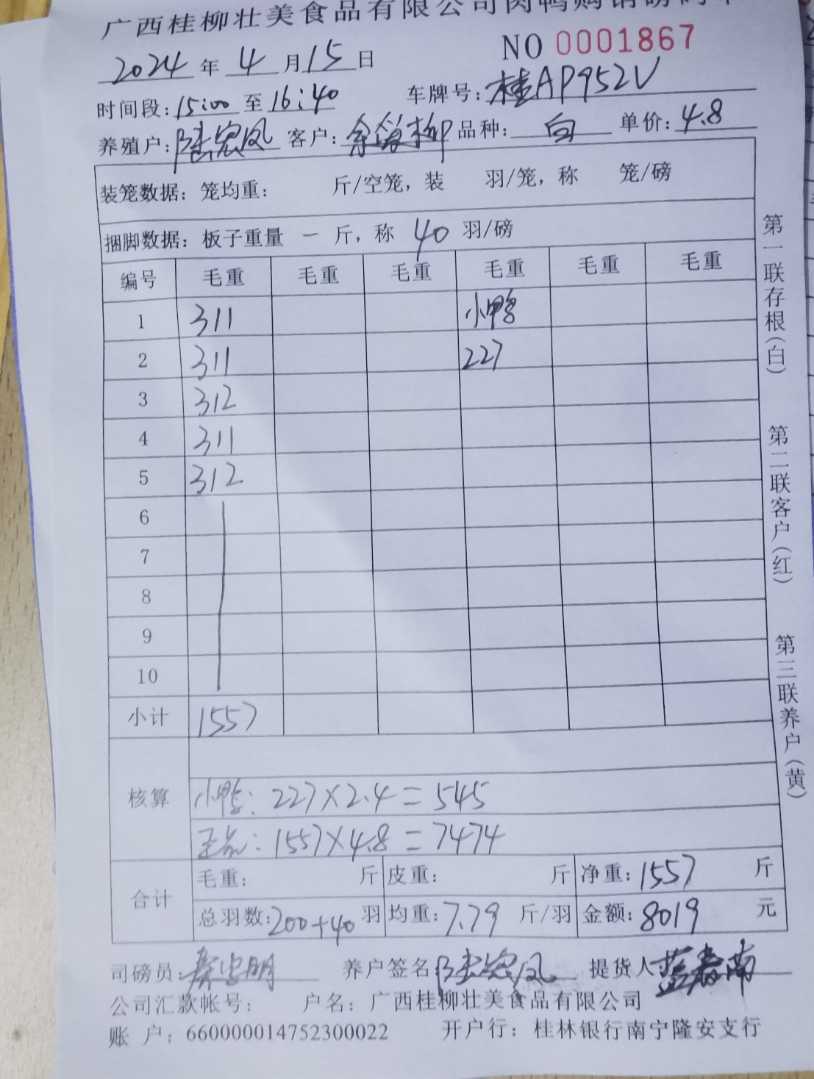 广西桂柳壮美食品有限公司肉鸭购销磅码单
NO 0001867
2024 年 4 月 15 日
时间段: 15:00 至 16:40 车牌号: 桂AP952V
养殖户: 客户: 品种: 白 单价: 4.8
装笼数据: 笼均重: 斤/空笼, 装 羽/笼, 称 笼/磅
捆脚数据: 板子重量 一 斤, 称 40 羽/磅
编号 毛重 毛重 毛重 毛重 毛重 毛重
1 311 小鸭
2 311 227
3 312
4 311
5 312
6
7
8
9
10
小计 1557
核算
小鸭: 227×2.4=545
正品: 1557×4.8=7474
合计
毛重: 斤 皮重: 斤 净重: 1557 斤
总羽数: 200+40 羽 均重: 7.79 斤/羽 金额: 8019 元
司磅员: 养户签名 提货人 蓝春南
公司汇款帐号: 户名: 广西桂柳壮美食品有限公司
账 户: 660000014752300022 开户行: 桂林银行南宁隆安支行
第一联存根(白)
第二联客户(红)
第三联养户(黄)